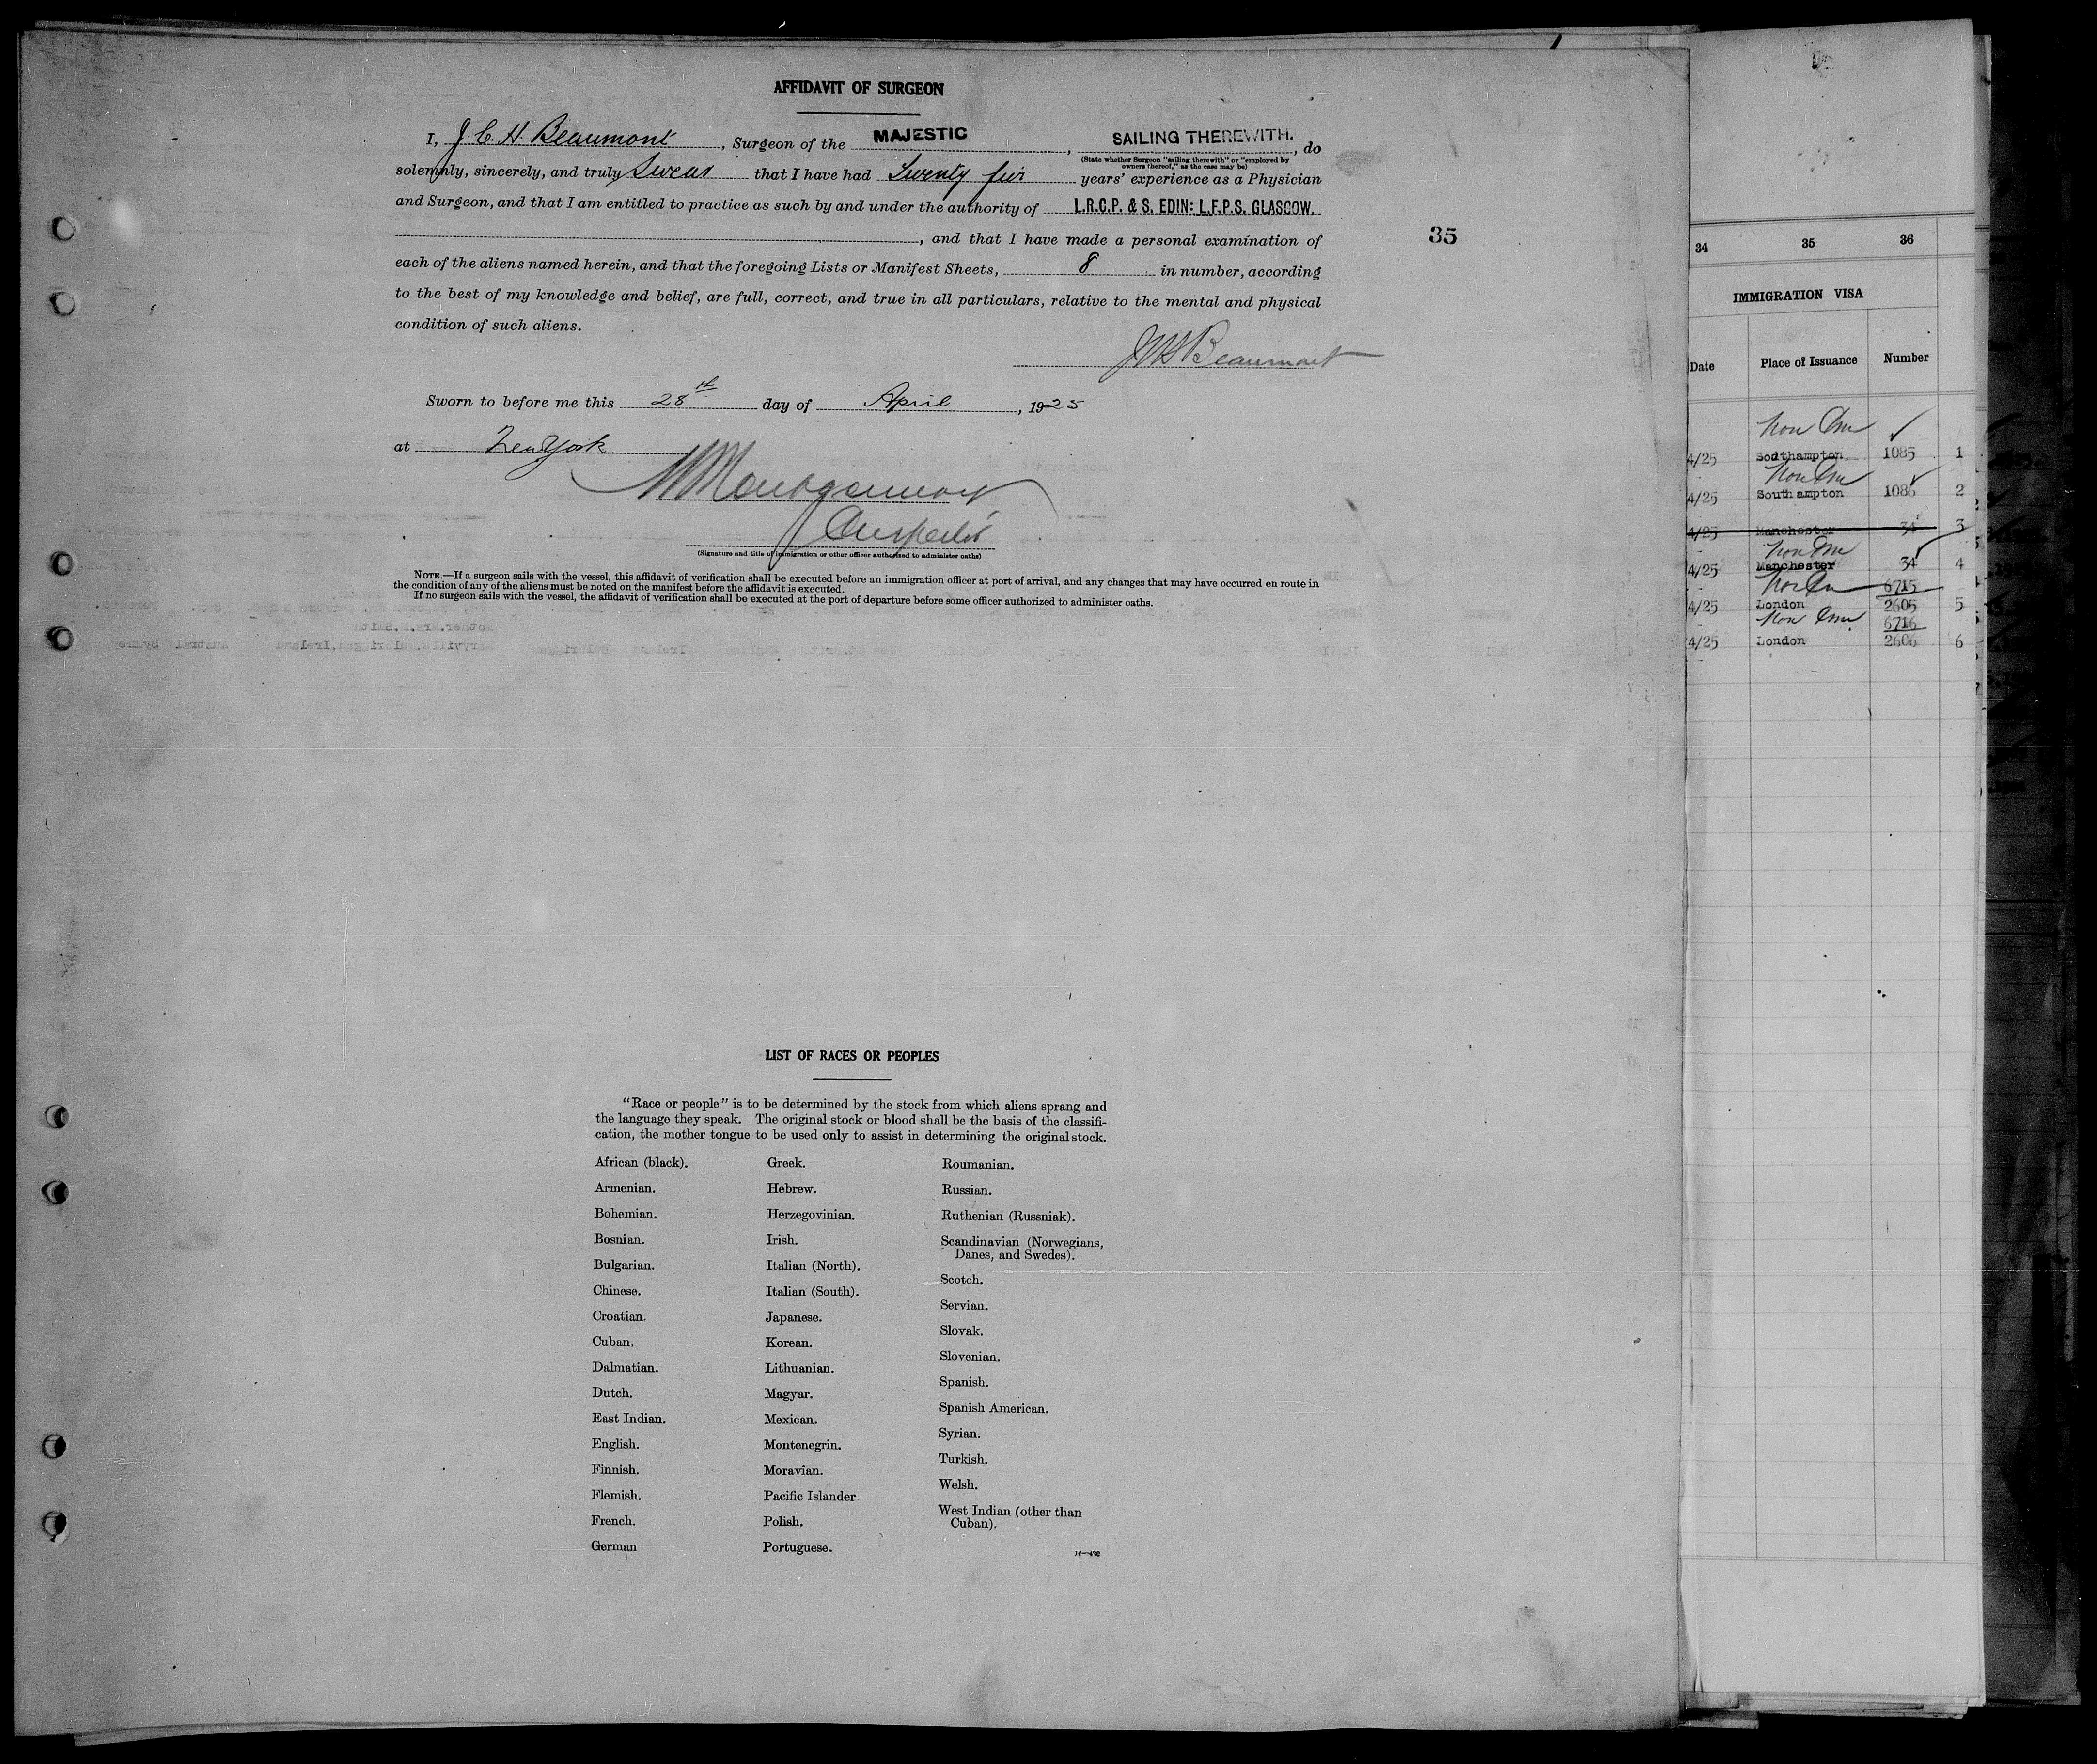 AFFIDAVIT OF SURGEON
I, J. C. H. Beaumont, Surgeon of the MAJESTIC, SAILING THEREWITH., do
(State whether Surgeon "sailing therewith" or "employed by
owners thereof," as the case may be)
solemnly, sincerely, and truly Swear that I have had Twenty five years' experience as a Physician
and Surgeon, and that I am entitled to practice as such by and under the authority of L.R.C.P. & S. EDIN: L.F.P.S. GLASGOW.
, and that I have made a personal examination of
35
each of the aliens named herein, and that the foregoing Lists or Manifest Sheets, 8 in number, according
to the best of my knowledge and belief, are full, correct, and true in all particulars, relative to the mental and physical
condition of such aliens.
JCH Beaumont
Sworn to before me this 28th day of April, 1925
at New York
Montgomery
Inspector
(Signature and title of immigration or other officer authorized to administer oaths)
NOTE.—If a surgeon sails with the vessel, this affidavit of verification shall be executed before an immigration officer at port of arrival, and any changes that may have occurred en route in
the condition of any of the aliens must be noted on the manifest before the affidavit is executed.
If no surgeon sails with the vessel, the affidavit of verification shall be executed at the port of departure before some officer authorized to administer oaths.
LIST OF RACES OR PEOPLES
"Race or people" is to be determined by the stock from which aliens sprang and
the language they speak. The original stock or blood shall be the basis of the classifi-
cation, the mother tongue to be used only to assist in determining the original stock.
African (black).
Armenian.
Bohemian.
Bosnian.
Bulgarian.
Chinese.
Croatian.
Cuban.
Dalmatian.
Dutch.
East Indian.
English.
Finnish.
Flemish.
French.
German
Greek.
Hebrew.
Herzegovinian.
Irish.
Italian (North).
Italian (South).
Japanese.
Korean.
Lithuanian.
Magyar.
Mexican.
Montenegrin.
Moravian.
Pacific Islander
Polish.
Portuguese.
Roumanian.
Russian.
Ruthenian (Russniak).
Scandinavian (Norwegians,
Danes, and Swedes).
Scotch.
Servian.
Slovak.
Slovenian.
Spanish.
Spanish American.
Syrian.
Turkish.
Welsh.
West Indian (other than
Cuban).
34 35 36
IMMIGRATION VISA
Date Place of Issuance Number
Non Imm
4/25 Southampton 1085 1
Non Imm
4/25 Southampton 1086 2
4/25 Manchester 34 3
Non Imm
4/25 Manchester 34 4
Non Imm 6715
4/25 London 2605 5
Non Imm 6716
4/25 London 2606 6